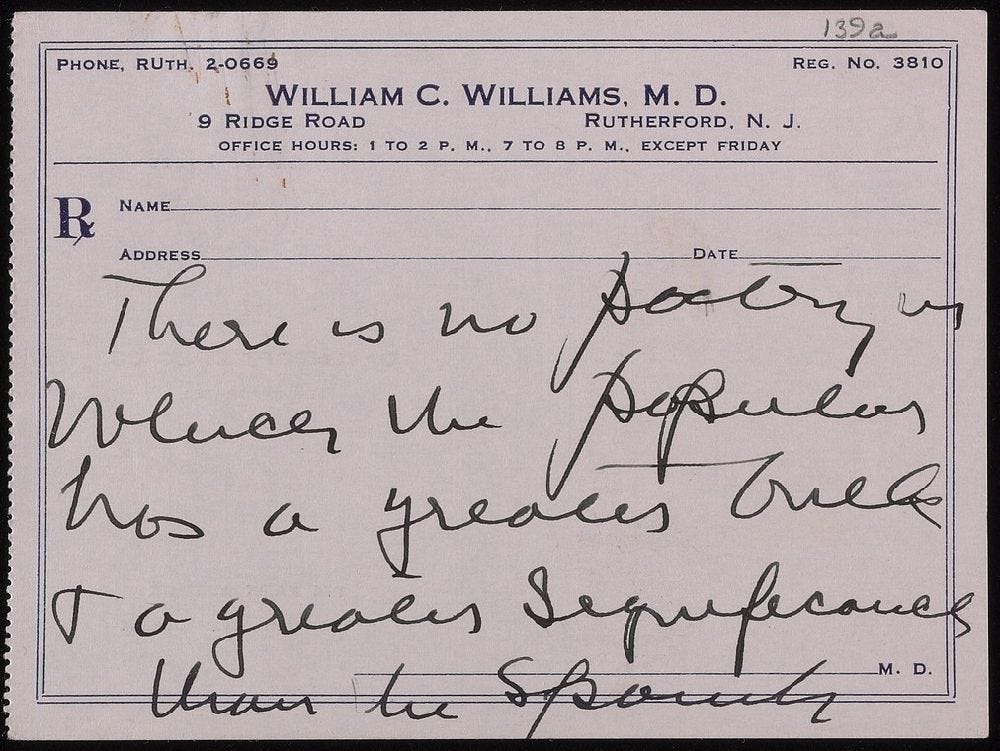 139a
PHONE, RUTH. 2-0669 REG. NO. 3810
WILLIAM C. WILLIAMS, M. D.
9 RIDGE ROAD RUTHERFORD, N. J.
OFFICE HOURS: 1 TO 2 P. M., 7 TO 8 P. M., EXCEPT FRIDAY
℞ NAME
ADDRESS DATE
There is no poetry in
which the popular
has a greater bulk
+ a greater significance
M. D.
than the Spanish